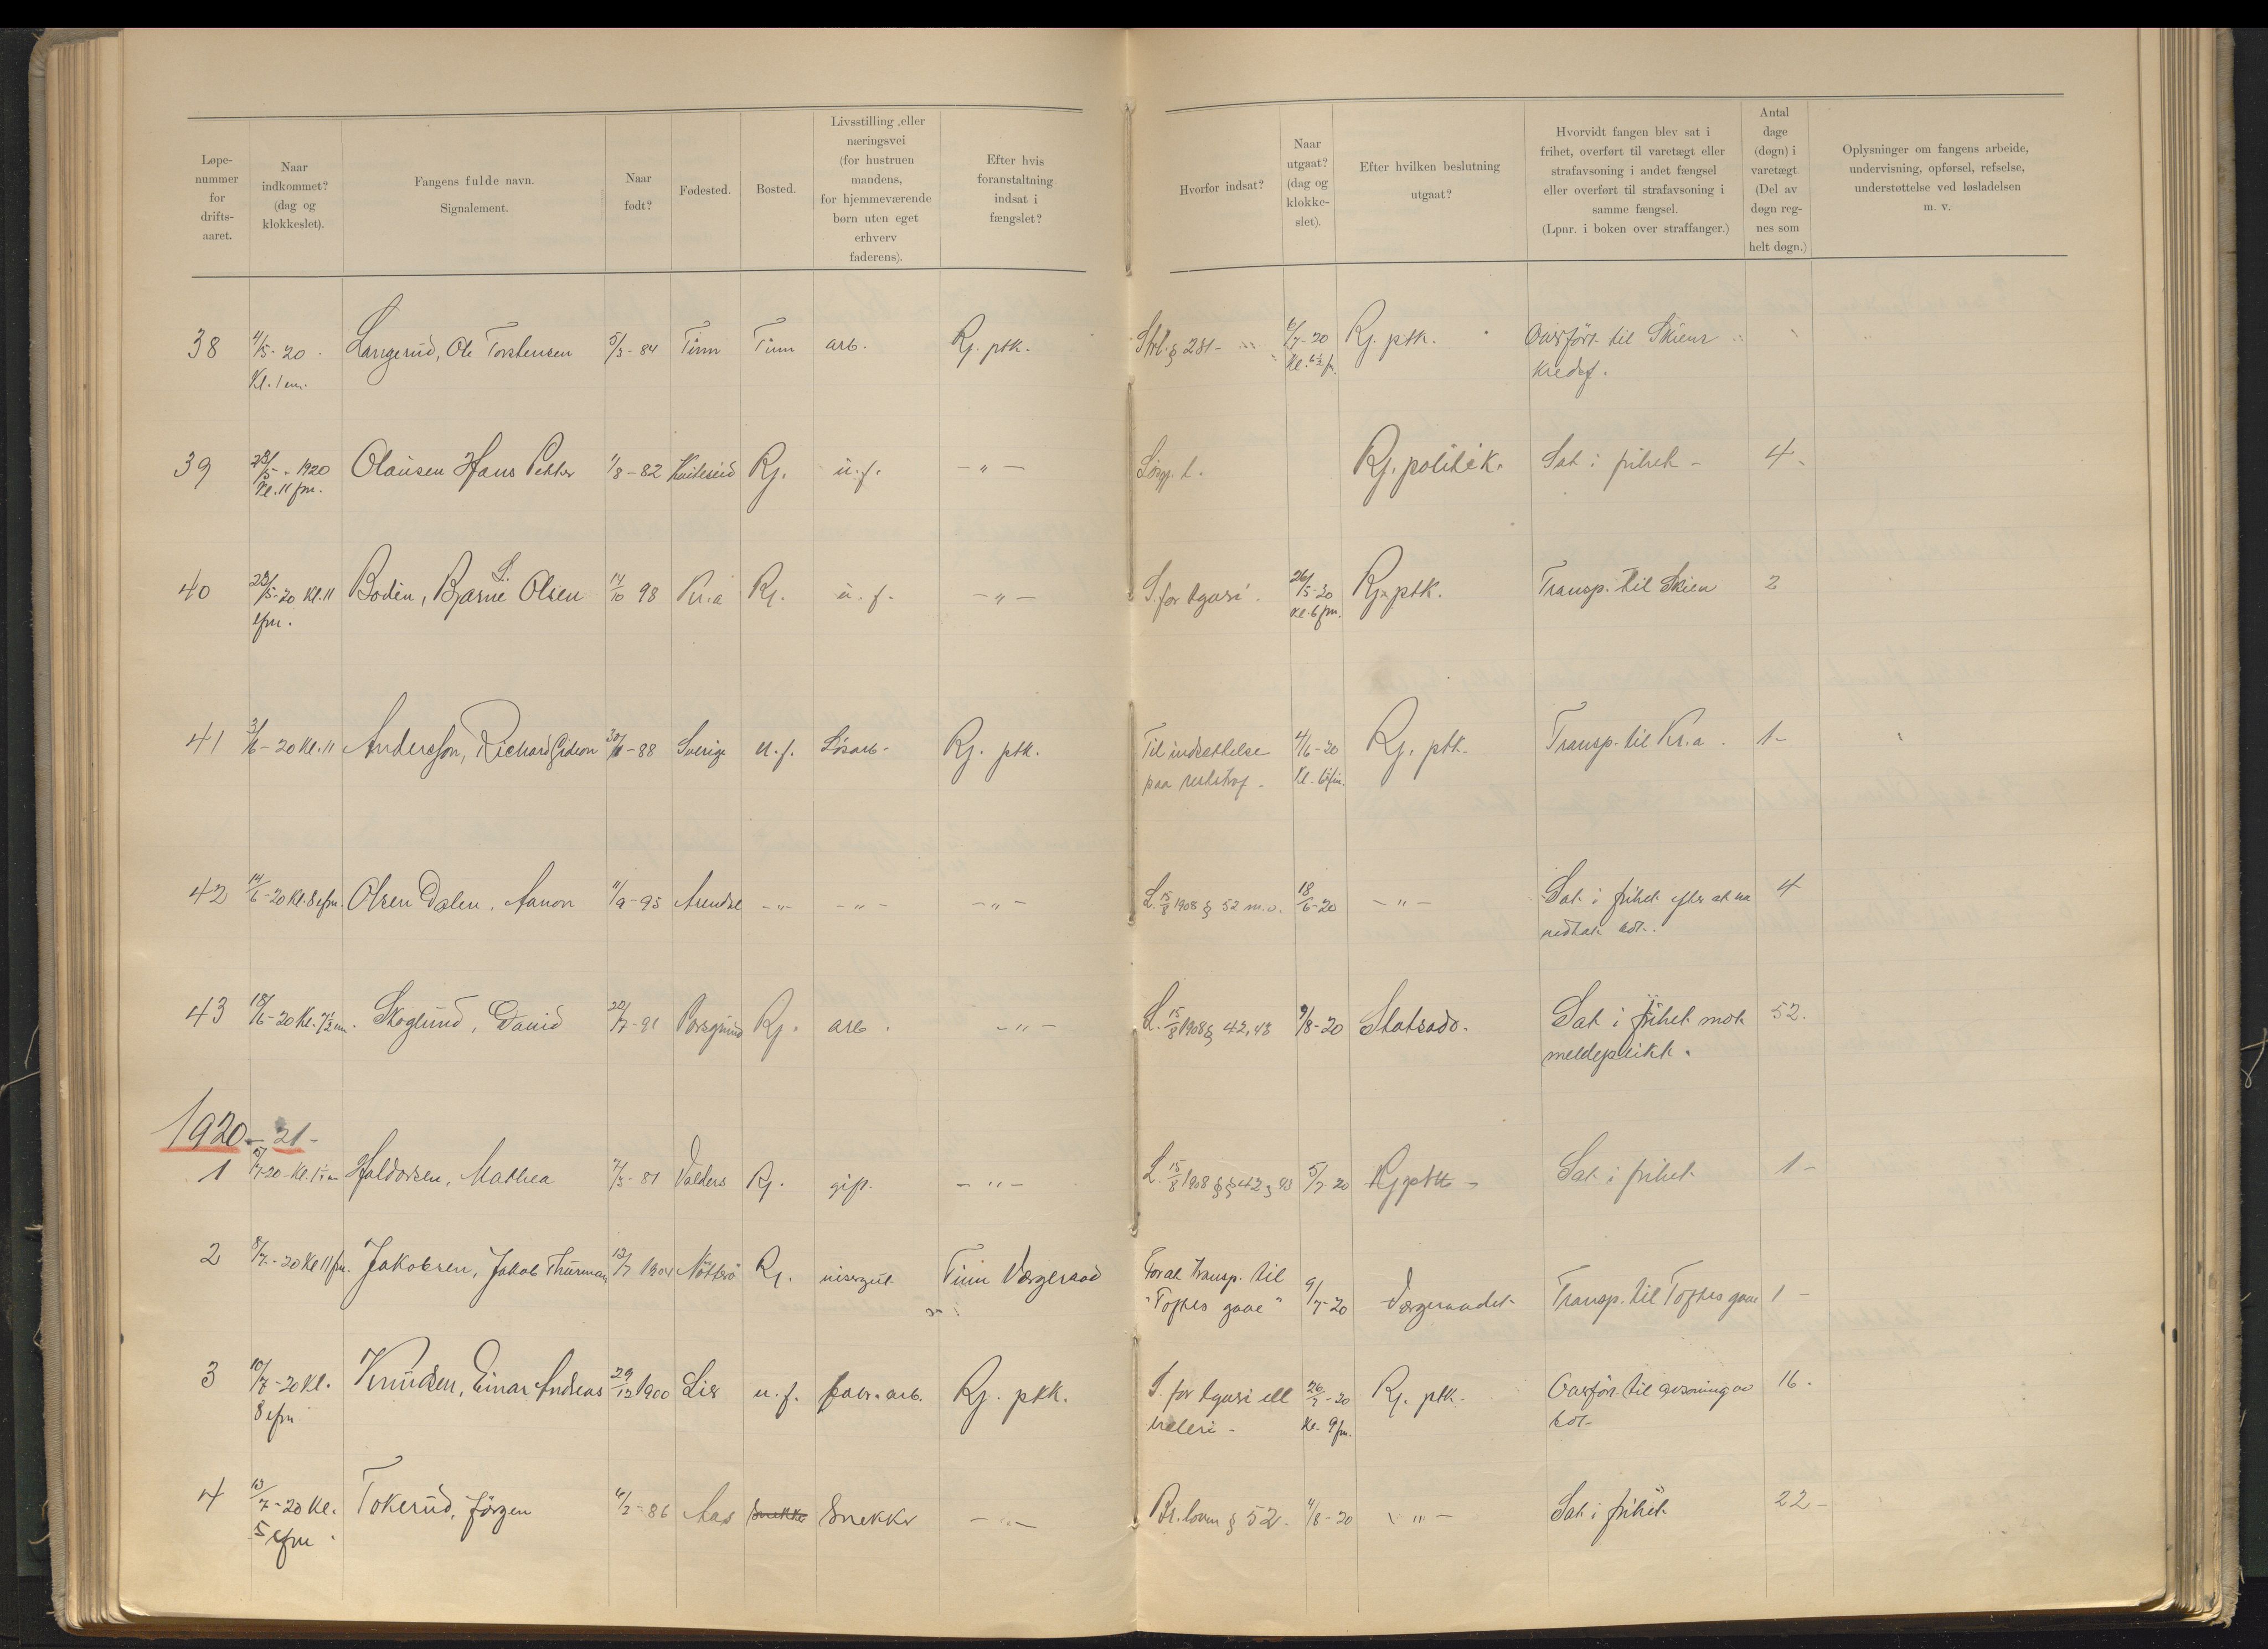 Løpe-
nummer
for
drifts-
aaret.
Naar
indkommet?
(dag og
klokkeslet).
Fangens fulde navn.
Signalement.
Naar
født?
Fødested.
Bosted.
Livsstilling eller
næringsvei
(for hustruen
mandens,
for hjemmeværende
børn uten eget
erhverv
faderens).
Efter hvis
foranstaltning
indsat i
fængslet?
Hvorfor indsat?
Naar
utgaat?
(dag og
klokke-
slet).
Efter hvilken beslutning
utgaat?
Hvorvidt fangen blev sat i
frihet, overført til varetægt eller
strafavsoning i andet fængsel
eller overført til strafavsoning i
samme fængsel.
(Lpnr. i boken over straffanger.)
Antal
dage
(døgn) i
varetægt.
(Del av
døgn reg-
nes som
helt døgn.)
Oplysninger om fangens arbeide,
undervisning, opførsel, refselse,
understøttelse ved løsladelsen
m. v.
38 4/5-20. Langerud, Ole Torstensen 5/3-84 Tinn Tinn arb. Rj. ptk. Strl. § 281- 6/7-20 Rj. ptk. Overført til Skiens
Kl. 1 em. Kl. 6½ fm. kredsf.
39 23/5-1920 Olausen Hans Petter 1/8-82 Kviteseid Rj. u.f. -"- Løsg. l. Rj. politik. Sat i frihet - 4-
Kl. 11 fm.
40 23/5-20 Kl. 11 Bodin, Bjarne S. Olsen 14/10 98 Kr.a Rj. u.f. -"- S. for tyveri. 26/5-20 Rj. ptk. Transp. til Skien 2
efm. Kl. 6 fm.
41 3/6-20 Kl. 11 Andersson, Richard Gideon 30/11-88 Sverige u.f. Løsarb- Rj. ptk. Til indsættelse 4/6-20 Rj. ptk. Transp. til Kr.a. 1-
paa reststraf-
42 14/6-20 Kl. 8 efm. Olsen Dalen, Aanon 11/9-95 Arendal -"- -"- -"- L. 15/8 1908 § 52 m.v. 18/6-20 -"- Sat i frihet efter at ha 4
vedtat bot.
43 18/6-20 Kl. 7½ em. Skoglund, David 22/7-91 Porsgrund Rj. arb. -"- L. 15/8 1908 § 42, 43 9/8-20 Statsadv. Sat i frihet mot 52.
meldeplikt.
1920-21-
1 5/7-20-Kl. Haldorsen, Mathea 7/3-81 Valders Rj. gift. -"- L. 15/8 1908 §§ 42, 43 5/7-20 Rj ptk- Sat i frihet 1-
2 8/7-20 Kl 11 fm. Jakobsen, Jakob Thurman 12/7 1904 Nøtterø Rj. visergut Tinn Værgeraad For at transp. til 9/7-20 Værgeraadet Transp. til Toftes gave 1-
"Toftes gave"
3 10/7-20 Kl. Knudsen, Einar Andreas 29/12 1900 Lier u.f. fabr. arb. Rj. ptk. S. for tyveri ell 26/7-20 Rj. ptk. Overfør. til avsoning av 16.
8 efm heleri- Kl. 9 fm. bot-
4 13/7-20 Kl. Tokerud, Jørgen 4/2-86 Aas Snekker Snekker -"- Br. loven § 52- 4/8-20 -"- Sat i frihet 22-
5 efm.